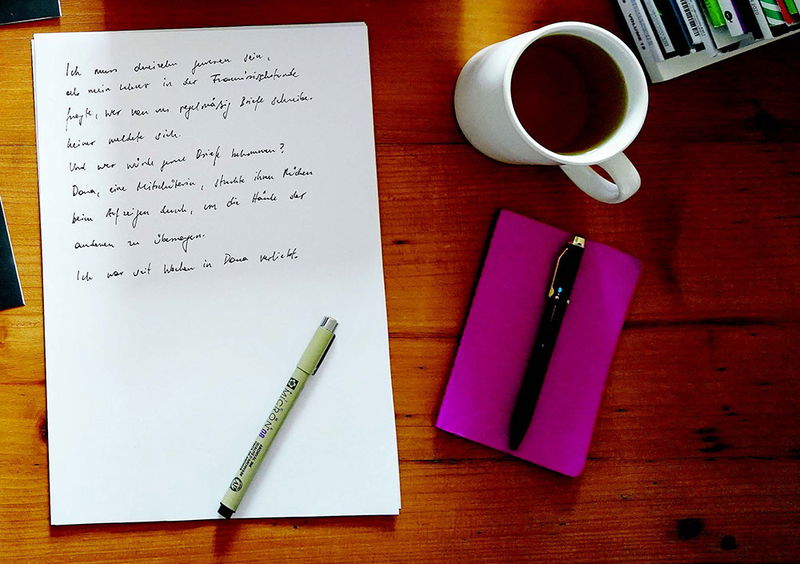 Ich muss dreizehn gewesen sein,
als mein Lehrer in der Französischstunde
fragte, wer von uns regelmäßig Briefe schreibe.
Keiner meldete sich.
Und wer würde gerne Briefe bekommen?
Dana, eine Mitschülerin, streckte ihren Rücken
beim Aufzeigen durch, um die Hände der
anderen zu überragen.
Ich war seit Wochen in Dana verliebt.
MICRON 08